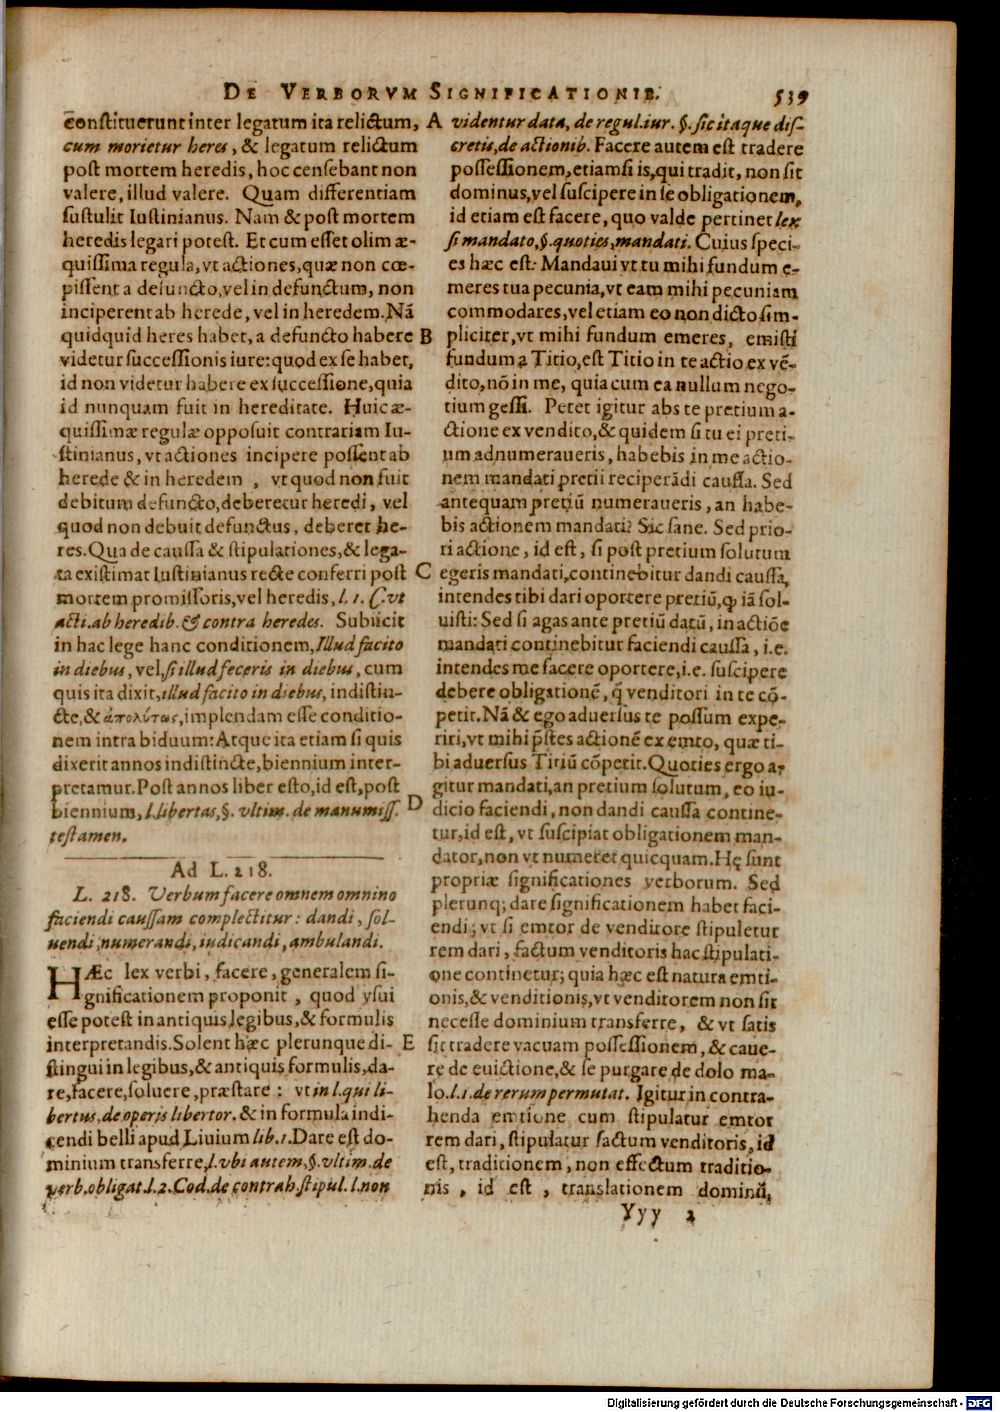 DE VERBORVM SIGNIFICATIONIB. 539
cōnstituerunt inter legatum ita relictum,
cum morietur heres, & legatum relictum
post mortem heredis, hoc censebant non
valere, illud valere. Quam differentiam
sustulit Iustinianus. Nam & post mortem
heredis legari potest. Et cum esset olim æ-
quissima regula, vt actiones, quæ non cœ-
pissent a defuncto, vel in defunctum, non
inciperent ab herede, vel in heredem. Nā
quidquid heres habet, a defuncto habere
videtur successionis iure: quod ex se habet,
id non videtur habere ex successione, quia
id nunquam fuit in hereditate. Huic æ-
quissimæ regulæ opposuit contrariam Iu-
stinianus, vt actiones incipere possent ab
herede & in heredem, vt quod non fuit
debitum defuncto, deberetur heredi, vel
quod non debuit defunctus, deberet he-
res. Qua de caussa & stipulationes, & lega-
ta existimat Iustinianus recte conferri post
mortem promissoris, vel heredis, l. 1. C. vt
acti. ab heredib. & contra heredes. Subiicit
in hac lege hanc conditionem, Illud facito
in diebus, vel, si illud feceris in diebus, cum
quis ita dixit, illud facito in diebus, indistin-
cte, & ἀπολύτως, implendam esse conditio-
nem intra biduum: Atque ita etiam si quis
dixerit annos indistincte, biennium inter-
pretamur. Post annos liber esto, id est, post
biennium, l. libertas, §. vltim. de manumiss.
testamen.
Ad L. 218.
L. 218. Verbum facere omnem omnino
faciendi caussam complectitur: dandi, sol-
uendi, numerandi, iudicandi, ambulandi.
HÆc lex verbi, facere, generalem si-
gnificationem proponit, quod vsui
esse potest in antiquis legibus, & formulis
interpretandis. Solent hæc plerunque di-
stingui in legibus, & antiquis formulis, da-
re, facere, soluere, præstare: vt in l. qui li-
bertus, de operis libertor. & in formula indi-
cendi belli apud Liuium lib. 1. Dare est do-
minium transferre, l. vbi autem, §. vltim. de
verb. obligat. l. 2. Cod. de contrah. stipul. l. non
A
B
C
D
E
videntur data, de regul. iur. §. sic itaque dis-
cretis, de actionib. Facere autem est tradere
possessionem, etiamsi is, qui tradit, non sit
dominus, vel suscipere in se obligationem,
id etiam est facere, quo valde pertinet lex
si mandato, §. quoties, mandati. Cuius speci-
es hæc est: Mandaui vt tu mihi fundum e-
meres tua pecunia, vt eam mihi pecuniam
commodares, vel etiam eo non dicto sim-
pliciter, vt mihi fundum emeres, emisti
fundum a Titio, est Titio in te actio ex vē-
dito, nō in me, quia cum ea nullum nego-
tium gessi. Petet igitur abs te pretium a-
ctione ex vendito, & quidem si tu ei preti-
um adnumeraueris, habebis in me actio-
nem mandati pretii reciperādi caussa. Sed
antequam pretiū numeraueris, an habe-
bis actionem mandati? Sic sane. Sed prio-
ri actione, id est, si post pretium solutum
egeris mandati, continebitur dandi caussa,
intendes tibi dari oportere pretiū, ꝙ iā sol-
uisti: Sed si agas ante pretiū datū, in actiōe
mandati continebitur faciendi caussa, i.e.
intendes me facere oportere, i.e. suscipere
debere obligationē, q̄ venditori in te cō-
petit. Nā & ego aduersus te possum expe-
riri, vt mihi p̄stes actionē ex emto, quæ ti-
bi aduersus Titiū cōpetit. Quoties ergo a-
gitur mandati, an pretium solutum, eo iu-
dicio faciendi, non dandi caussa contine-
tur, id est, vt suscipiat obligationem man-
dator, non vt numeret quicquam. Hę sunt
propriæ significationes verborum. Sed
plerunq; dare significationem habet faci-
endi; vt si emtor de venditore stipuletur
rem dari, factum venditoris hac stipulati-
one continetur; quia hæc est natura emti-
onis, & venditionis, vt venditorem non sit
necesse dominium transferre, & vt satis
sit tradere vacuam possessionem, & caue-
re de euictione, & se purgare de dolo ma-
lo. l. 1. de rerum permutat. Igitur in contra-
henda emtione cum stipulatur emtor
rem dari, stipulatur factum venditoris, id
est, traditionem, non effectum traditio-
nis, id est, translationem dominii,
Yyy 2
Digitalisierung gefördert durch die Deutsche Forschungsgemeinschaft - DFG